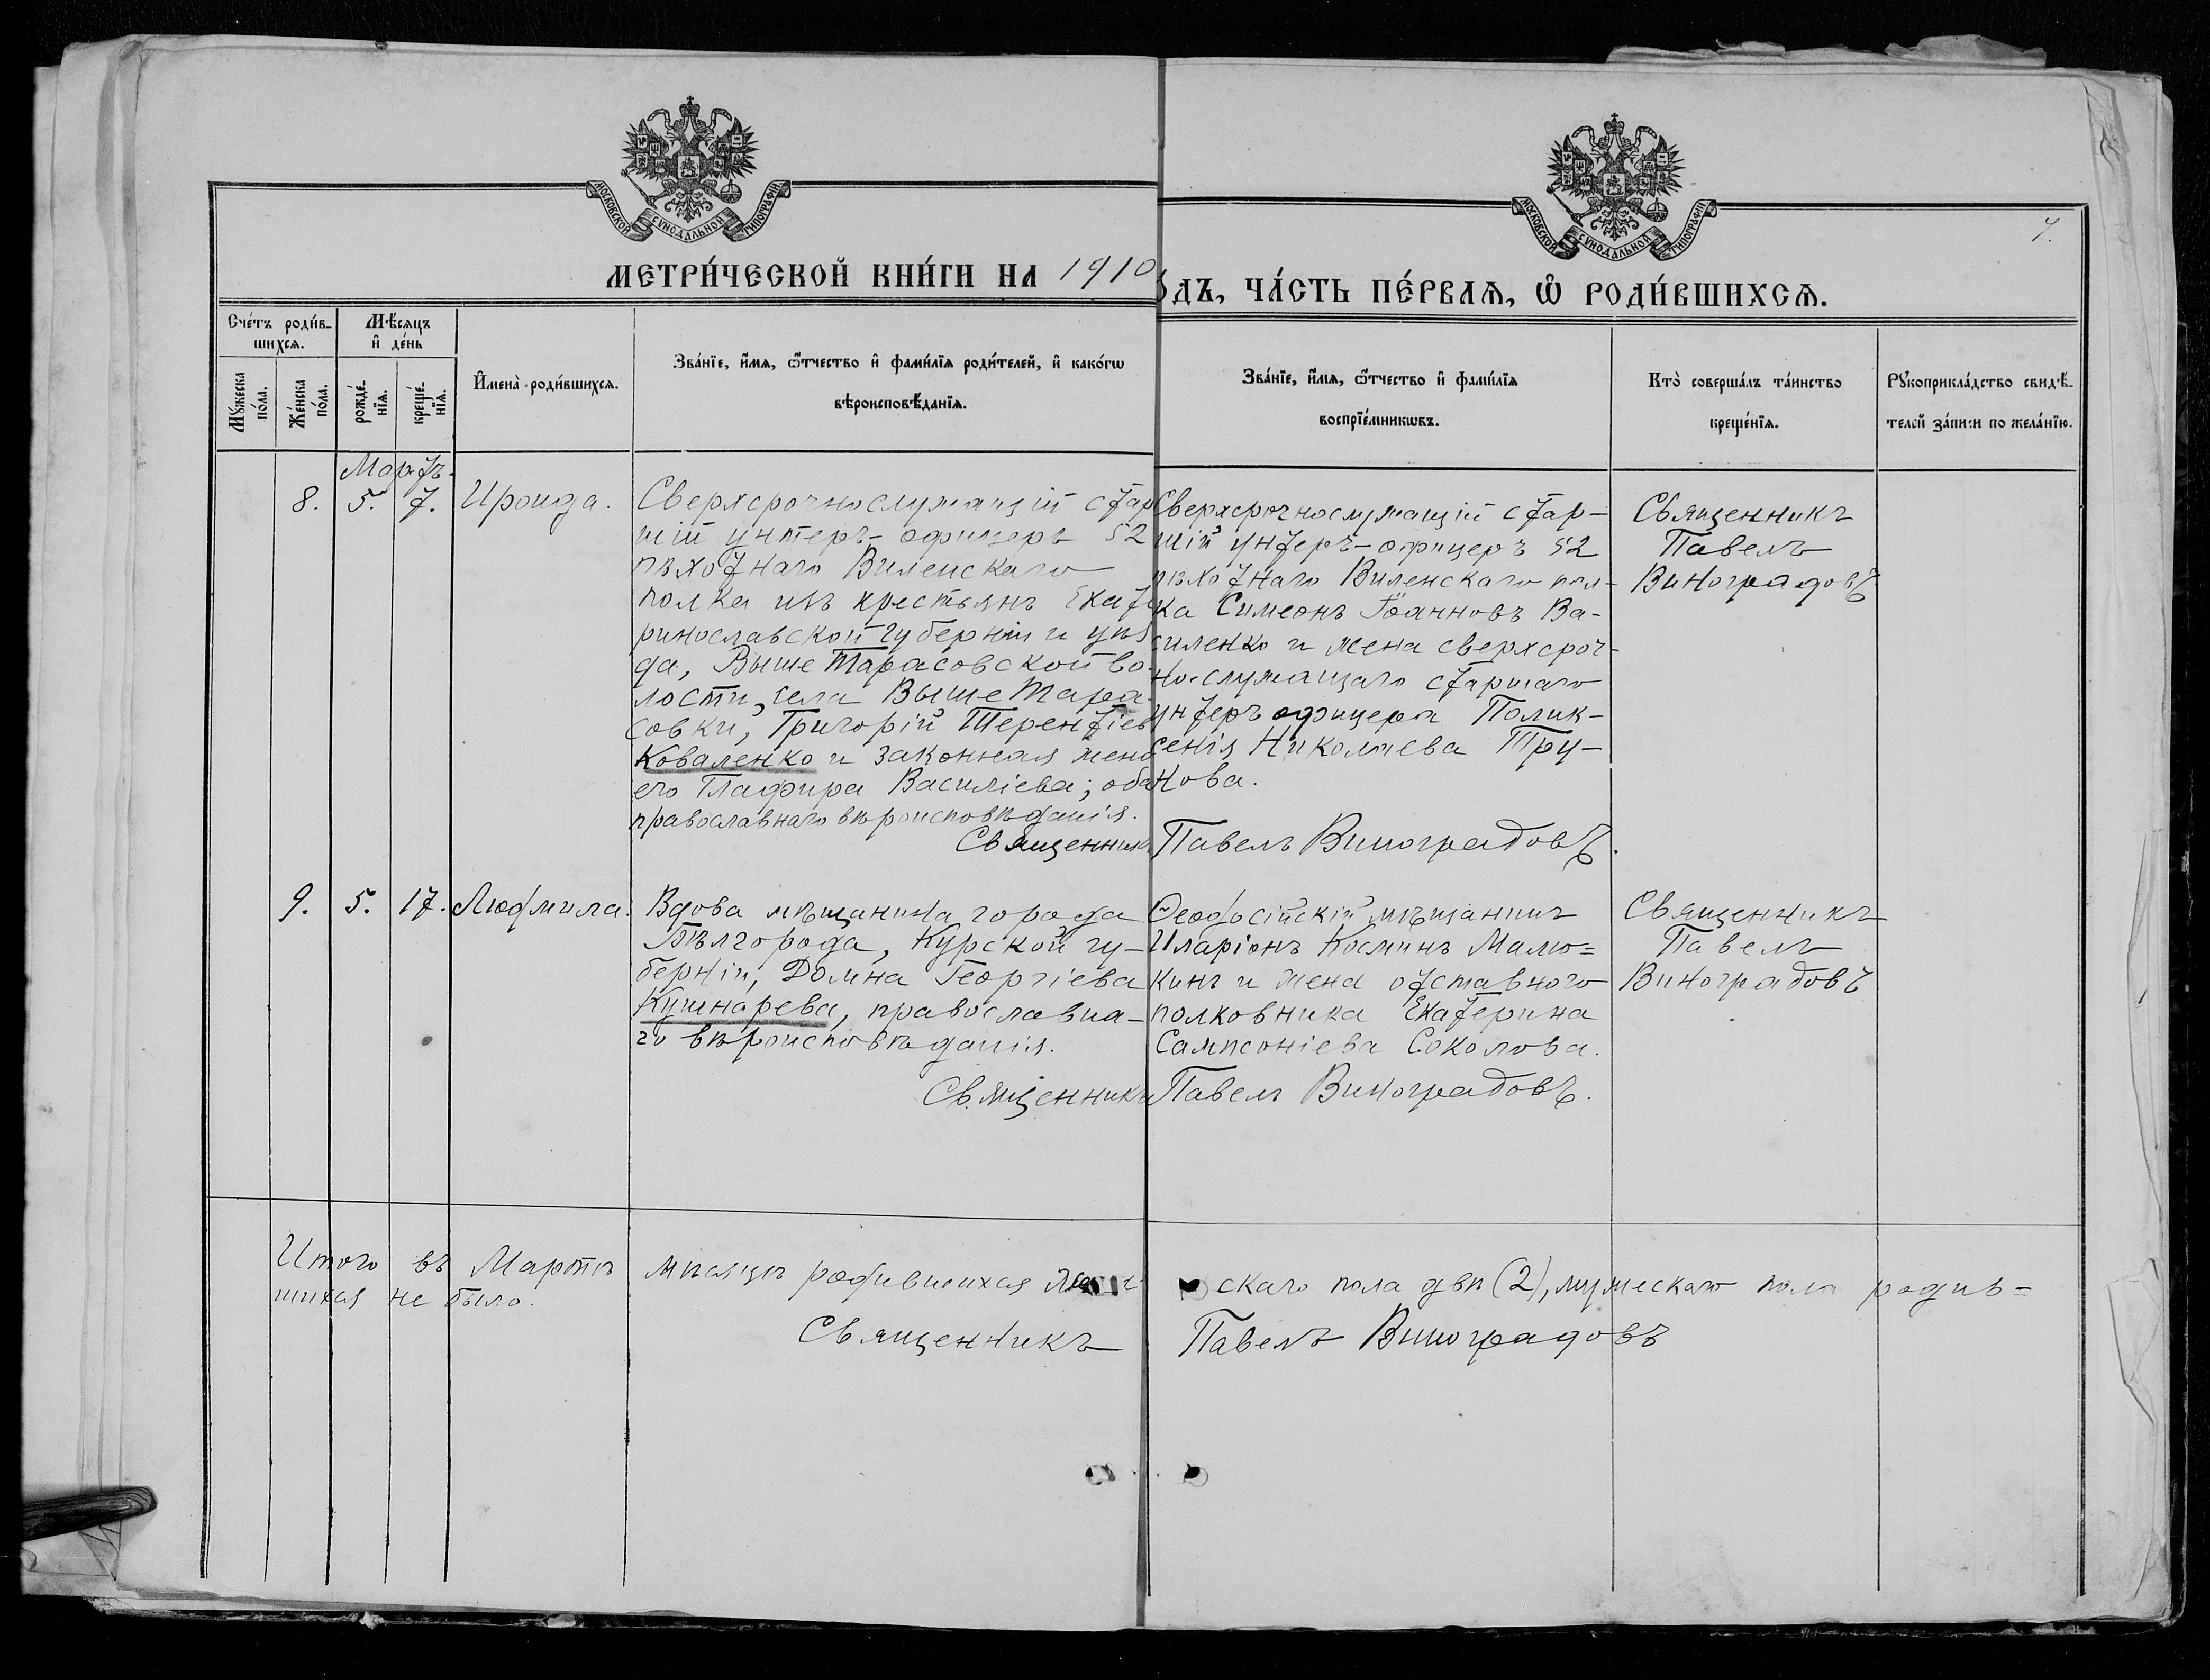 МОСКОВСКОЙ СѴНОДАЛЬНОЙ ТИПОГРАФІИ
МОСКОВСКОЙ СѴНОДАЛЬНОЙ ТИПОГРАФІИ
МЕТРИ́ЧЕСКОЙ КНИ́ГИ НА 1910
ОДЪ, ЧА́СТЬ ПЕ́РВАѦ, Ѡ РОДИ́ВШИХСѦ.
Сче́тъ роди́в-
шихсѧ.
Мꙋ́жеска по́ла.
Же́нска по́ла.
Мѣ́сѧцъ
и҆ де́нь
рожде́-
нїѧ.
креще́-
нїѧ.
И҆мена̀ роди́вшихсѧ.
Зва́нїе, и҆́мѧ, ѻ҆́тчество и҆ фами́лїѧ роди́телей, и҆ како́гѡ
вѣроисповѣ́данїѧ.
Зва́нїе, и҆́мѧ, ѻ҆́тчество и҆ фами́лїѧ
воспрїе́мникѡвъ.
Кто̀ соверша́лъ та́инство
креще́нїѧ.
Рꙋкоприкла́дство свидѣ́-
телей за́писи по жела́нїю.
Мартъ.
8. 5. 7. Ироида.
Сверхсрочнослужащій стар
шій унтеръ-офицеръ 52
пѣхотнаго Виленскаго
полка изъ крестьянъ Екате
ринославской губерніи и уѣз
да, Выше Тарасовской во-
лости, села Выше Тара-
совки, Григорій Терентіев
Коваленко и законная жена
его Глафира Василіева; оба
православнаго вѣроисповѣданія.
Сверхсрочнослужащій стар-
шій унтеръ-офицеръ 52
пѣхотнаго Виленскаго пол-
ка Симеонъ Іоанновъ Ва-
силенко и жена сверхсроч-
но-служащаго старшаго
унтеръ офицера Полик-
сенія Николаева Тру-
нова.
Священникъ
Павелъ
Виноградовъ
Священникъ Павелъ Виноградовъ.
9. 5. 17. Людмила.
Вдова мѣщанина города
Бѣлгорода, Курской гу-
берніи, Домна Георгіева
Кушнарева, православна-
го вѣроисповѣданія.
Ѳеодосійскій мѣщанинъ
Иларіонъ Косминъ Малю=
кинъ и жена отставного
полковника Екатерина
Сампсоніева Соколова.
Священникъ
Павелъ
Виноградовъ
Священникъ Павелъ Виноградовъ.
Итого въ Мартѣ мѣсяцѣ родившихся женскаго пола двѣ (2), мужескаго пола родив=
шихся не было.
Священникъ Павелъ Виноградовъ